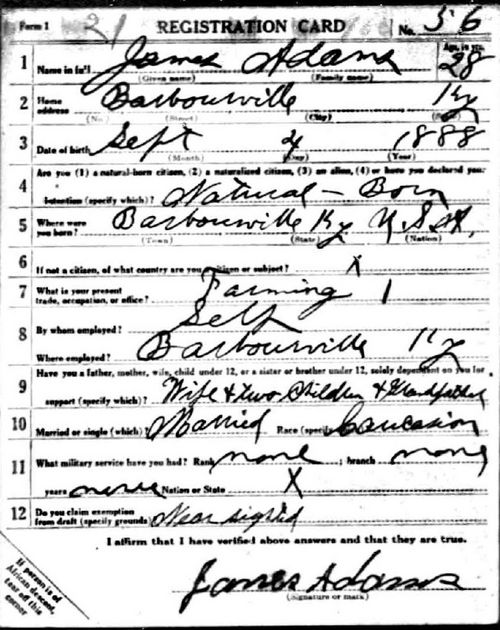 Form 1 21 REGISTRATION CARD No. 56
1 Name in full James Adams Age, in yrs. 28
(Given name) (Family name)
2 Home address Barbourville Ky
(No.) (Street) (City) (State)
3 Date of birth Sept 4 1888
(Month) (Day) (Year)
4 Are you (1) a natural-born citizen, (2) a naturalized citizen, (3) an alien, (4) or have you declared your
intention (specify which)? Natural - Born
5 Where were you born? Barbourville Ky U.S.A.
(Town) (State) (Nation)
6 If not a citizen, of what country are you a citizen or subject? X
7 What is your present trade, occupation, or office? Farming 1
8 By whom employed? Self
Where employed? Barbourville Ky
9 Have you a father, mother, wife, child under 12, or a sister or brother under 12, solely dependent on you for
support (specify which)? Wife & two Children & Grandfather
10 Married or single (which)? Married Race (specify Caucasion
11 What military service have you had? Rank none ; branch none
years none Nation or State X
12 Do you claim exemption from draft (specify grounds) Near sighted
I affirm that I have verified above answers and that they are true.
James Adams
(Signature or mark)
If person is of
African descent,
tear off this
corner